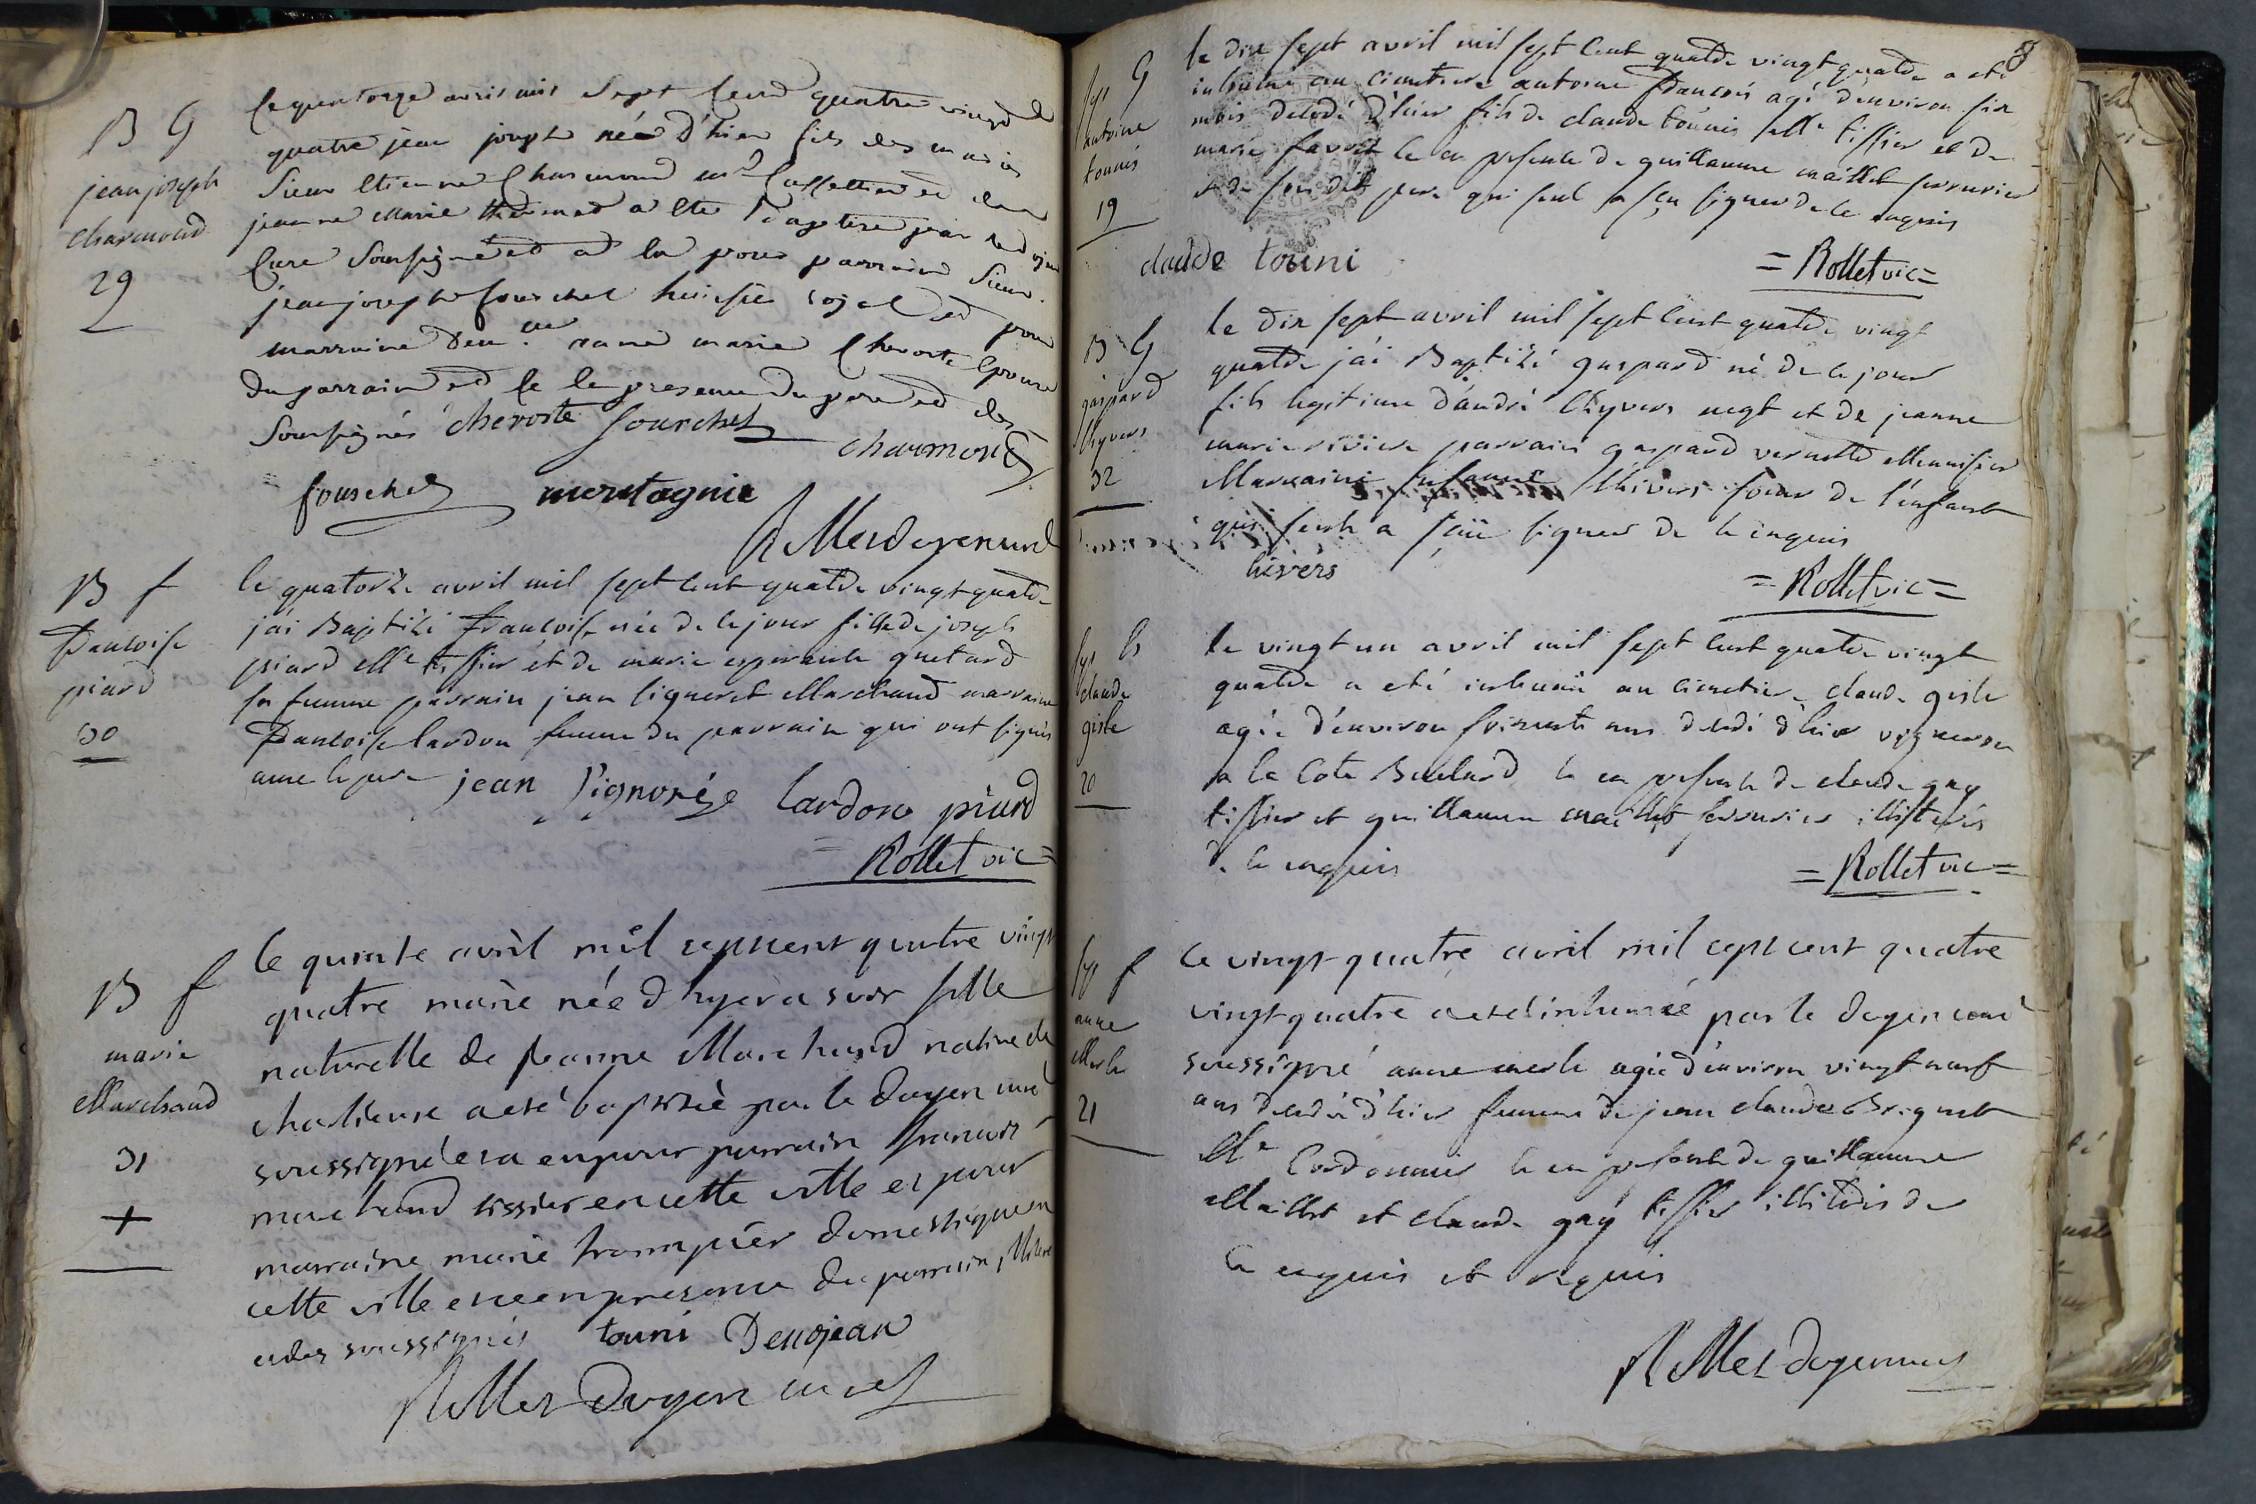 B G
jean joseph
charmond
29
le quatorze avril mil sept cent quatre vingt
quatre jean joseph née d'hier fils des mariés
Sieur Etienne Charmond md Caffetier et de
jeanne Marie a eté Baptisé par
Curé Soussigné et a eu pour parrain Sieur
jean joseph fourchet huissier royal et pour
marraine dem.elle anne marie Cheroste Epouse
du parrain et ce en presence du pere et des
Soussignés cheroste fourchet charmond
fourchet montagnie
Rollet doyen curé
B f
francoise
piard
30
le quatorze avril mil sept cent quatre vingt quatre
j'ai Baptisé francoise née de ce jour fille de joseph
piard Me tissier et de marie esperance quetard
sa femme parrain jean ligneret Marchand marraine
francoise lardon femme du parrain qui ont signés
avec le pere jean lardon piard
= Rollet vic =
B f
marie
Marchand
31
+
le quinze avril mil sept cent quatre vingt
quatre marie née d hyer a soir fille
naturelle de jeanne Marchand native de
a eté baptisée par le doyen curé
soussigné et a eu pour parrain francois
marchand tissier en cette ville et pour
marraine marie domestique en
cette ville et ce en presence du parrain,
et des soussignés touni Denojean
Rollet Doyen curé
8
sep G
antoine
tounis
19
le dix sept avril mil sept cent quatre vingt quatre a eté
inhumé au cimetiere antoine francois agé d'environ six
mois decedé d'hier fils de claude tounis Me tissier et de
marie favret ce en presence de guillaume maillet serrurier
et de son dit pere qui seul a scu signer de ce enquis
claude touni
= Rollet vic =
B G
gaspard
lhyvers
32
le dix sept avril mil sept cent quatre vingt
quatre j'ai Baptisé gaspard né de ce jour
fils legitime d'andré lhyvers negt et de jeanne
marie riviere parrain gaspard vernette Menuisier
Marraine susanne lhivers soeur de l'enfant
qui seule a scüe signer de ce enquis
hivers
= Rollet vic =
sep G
claude
gisle
20
le vingt un avril mil sept cent quatre vingt
quatre a eté inhumé au cimetiere claude gisle
agée d'environ soixante ans decedé d'hier vigneron
a la Cote ce en presence de claude gay
tissier et guillaume maillet serrurier illiterés
de ce enquis
= Rollet vic =
sep f
anne
Merle
21
le vingt quatre avril mil cept cent quatre
vingt quatre a eté inhumée par le doyen curé
soussigné anne merle agée d'environ vingt neuf
ans decedée d'hier femme de jean claude Briquet
Me Cordonnier ce en presence de guillaume
Maillet et claude gay tissier illiterés de
ce enquis et requis
Rollet doyen curé